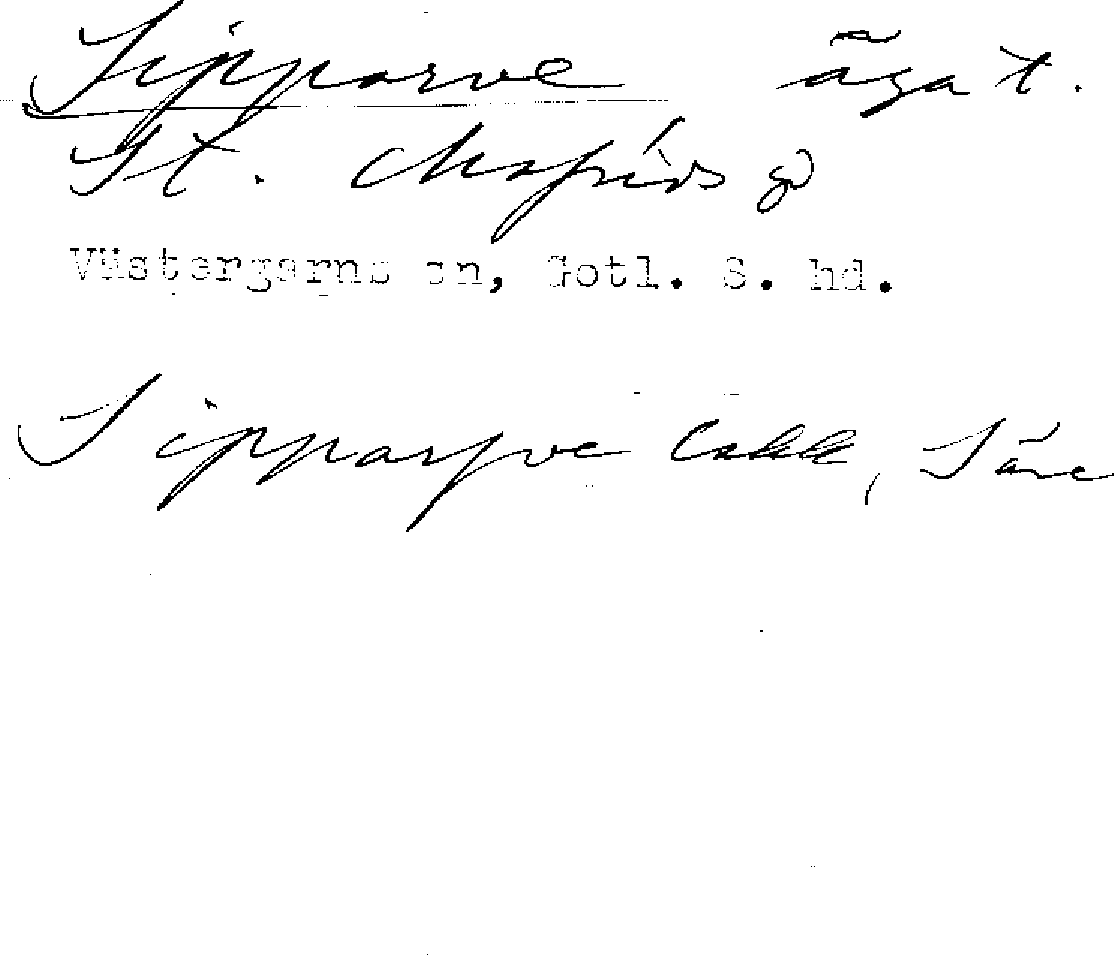 Sipparve ägat.
St. Mafrids g
Västergarns sn, Gotl. S. hd.
Sipparfve Säve